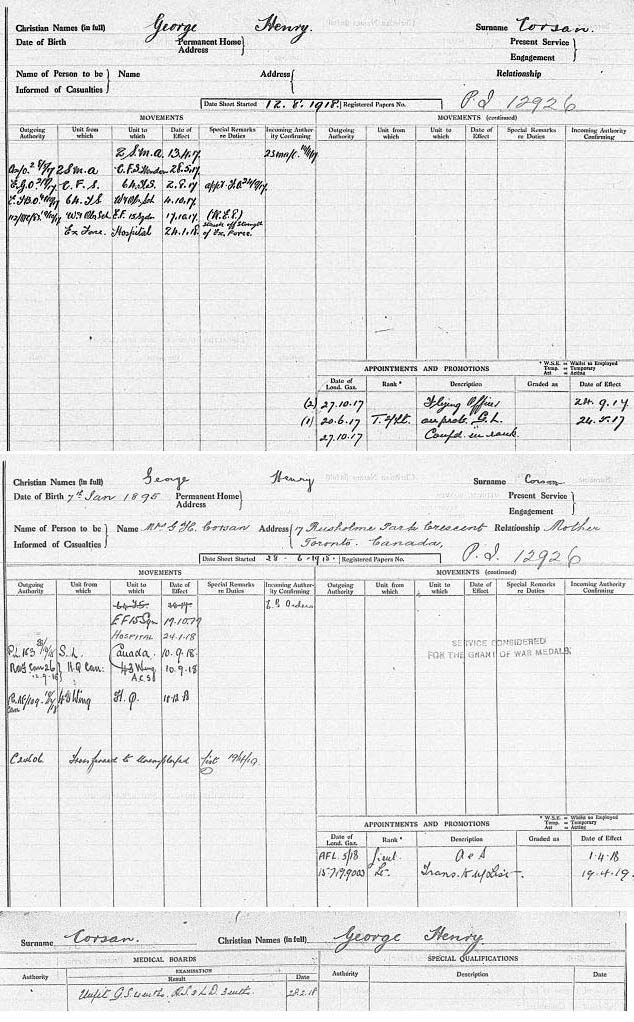 Christian Names (in full) George Henry. Surname Corsan.
Date of Birth Permanent Home Address Present Service Engagement
Name of Person to be Informed of Casualties Name Address Relationship
Date Sheet Started 12.8.1918. Registered Papers No. P.I. 12926
MOVEMENTS MOVEMENTS (continued)
Outgoing Authority Unit from which Unit to which Date of Effect Special Remarks re Duties Incoming Authority Confirming Outgoing Authority Unit from which Unit to which Date of Effect Special Remarks re Duties Incoming Authority Confirming
2 S.m.a. 13.4.17.
2 S.m.a C.F.S. 28.5.17.
C.F.S. 64.T.S. 2.8.17
64.T.S. 4.10.17.
E.F. 15 Sqdn 17.10.17 (R.E.8)
Ex Force. Hospital 24.1.18. Struck off Strength of Ex. Force.
* W.S.E. = Whilst so Employed
Temp. = Temporary
Act = Acting
APPOINTMENTS AND PROMOTIONS
Date of Lond. Gaz. Rank * Description Graded as Date of Effect
(2) 27.10.17 Flying Officer 24.9.17
(1) 20.6.17 T. 2/Lt. on prob. G.L. 24.5.17
27.10.17 Confd. in rank.
Christian Names (in full) George Henry Surname Corsan
Date of Birth 7th Jan 1895 Permanent Home Address Present Service Engagement
Name of Person to be Informed of Casualties Name Mrs G.H. Corsan Address 7 Rusholme Park Crescent Toronto. Canada, Relationship Mother
Date Sheet Started 28-6-1918. Registered Papers No. P.I. 12926
MOVEMENTS MOVEMENTS (continued)
Outgoing Authority Unit from which Unit to which Date of Effect Special Remarks re Duties Incoming Authority Confirming Outgoing Authority Unit from which Unit to which Date of Effect Special Remarks re Duties Incoming Authority Confirming
64 T.S.
EF 15 Sqn 19.10.17
HOSPITAL 24-1-18
S.L. Canada. 10.9.18.
H.Q. Can. 43 Wing 10.9.18
Wing H.Q. 18.12.18
SERVICE CONSIDERED
FOR THE GRANT OF WAR MEDALS.
Transferred to Unemployed List 19/4/19.
* W.S.E. = Whilst so Employed
Temp. = Temporary
Act = Acting
APPOINTMENTS AND PROMOTIONS
Date of Lond. Gaz. Rank * Description Graded as Date of Effect
AFL. 5/18 Lieut. A & S 1.4.18
Lt. Trans. to U/List 19.4.19.
Surname Corsan. Christian Names (in full) George Henry.
MEDICAL BOARDS SPECIAL QUALIFICATIONS
Authority EXAMINATION Result Date Authority Description Date
Unfit G.S. 28.2.18